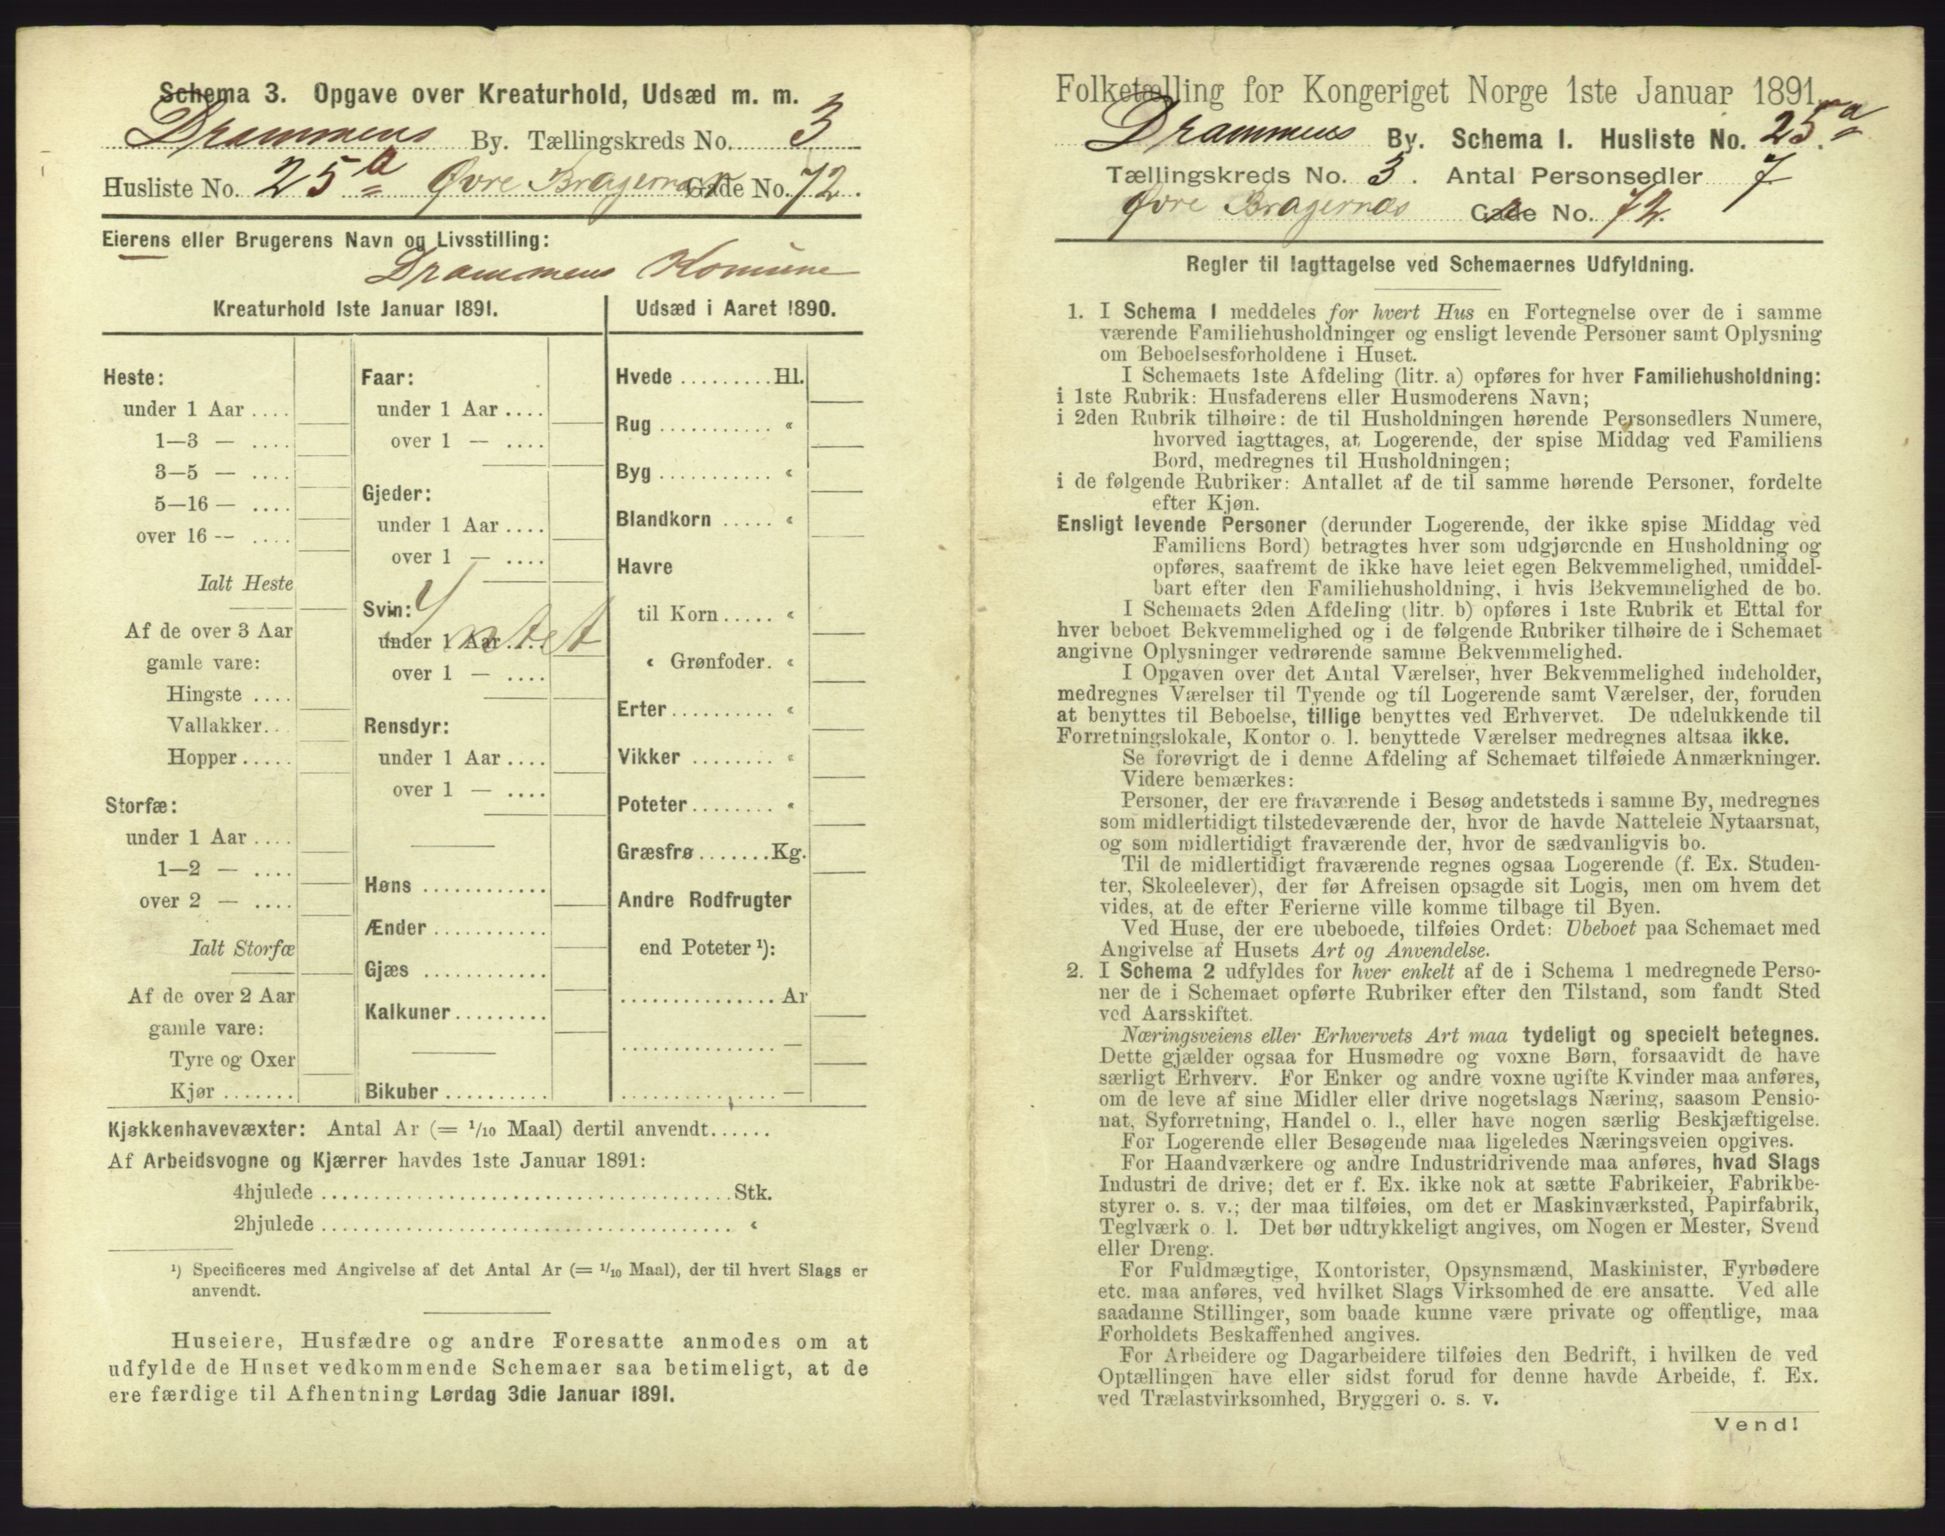 Schema 3. Opgave over Kreaturhold, Udsæd m. m.
Drammens By. Tællingskreds No. 3
Husliste No. 25 a Øvre Bragernæs Gade No. 72.
Eierens eller Brugerens Navn og Livsstilling:
Drammens Komune
Kreaturhold 1ste Januar 1891.
Heste:
under 1 Aar ....
1—3 — ....
3—5 — ....
5—16 — ....
over 16 — ....
Ialt Heste
Af de over 3 Aar
gamle vare:
Hingste ....
Vallakker...
Hopper.....
Storfæ:
under 1 Aar ....
1—2 — ....
over 2 — ....
Ialt Storfæ
Af de over 2 Aar
gamle vare:
Tyre og Oxer
Kjør .......
Faar:
under 1 Aar ....
over 1 — ....
Gjeder:
under 1 Aar ....
over 1 — ....
Svin:
under 1 Aar ....
Intet
over 1 — ....
Rensdyr:
under 1 Aar ....
over 1 — ....
Høns ............
Ænder ...........
Gjæs ............
Kalkuner.........
Bikuber ..........
Udsæd i Aaret 1890.
Hvede .........Hl.
Rug ........... «
Byg ........... «
Blandkorn ..... «
Havre
til Korn ..... «
« Grønfoder. «
Erter.......... «
Vikker ........ «
Poteter........ «
Græsfrø .......Kg.
Andre Rodfrugter
end Poteter ¹):
...............Ar
............... —
............... —
Kjøkkenhavevæxter: Antal Ar (= 1/10 Maal) dertil anvendt......
Af Arbeidsvogne og Kjærrer havdes 1ste Januar 1891:
4hjulede ........................................Stk.
2hjulede ........................................ «
¹) Specificeres med Angivelse af det Antal Ar (= 1/10 Maal), der til hvert Slags er
anvendt.
Huseiere, Husfædre og andre Foresatte anmodes om at
udfylde de Huset vedkommende Schemaer saa betimeligt, at de
ere færdige til Afhentning Lørdag 3die Januar 1891.
Folketælling for Kongeriget Norge 1ste Januar 1891.
Drammens By. Schema 1. Husliste No. 25 a
Tællingskreds No. 3. Antal Personsedler 7.
Øvre Bragernæs Gade No. 72.
Regler til Iagttagelse ved Schemaernes Udfyldning.
1. I Schema 1 meddeles for hvert Hus en Fortegnelse over de i samme
værende Familiehusholdninger og ensligt levende Personer samt Oplysning
om Beboelsesforholdene i Huset.
I Schemaets 1ste Afdeling (litr. a) opføres for hver Familiehusholdning:
i 1ste Rubrik: Husfaderens eller Husmoderens Navn;
i 2den Rubrik tilhøire: de til Husholdningen hørende Personsedlers Numere,
hvorved iagttages, at Logerende, der spise Middag ved Familiens
Bord, medregnes til Husholdningen;
i de følgende Rubriker: Antallet af de til samme hørende Personer, fordelte
efter Kjøn.
Ensligt levende Personer (derunder Logerende, der ikke spise Middag ved
Familiens Bord) betragtes hver som udgjørende en Husholdning og
opføres, saafremt de ikke have leiet egen Bekvemmelighed, umiddel-
bart efter den Familiehusholdning, i hvis Bekvemmelighed de bo.
I Schemaets 2den Afdeling (litr. b) opføres i 1ste Rubrik et Ettal for
hver beboet Bekvemmelighed og i de følgende Rubriker tilhøire de i Schemaet
angivne Oplysninger vedrørende samme Bekvemmelighed.
I Opgaven over det Antal Værelser, hver Bekvemmelighed indeholder,
medregnes Værelser til Tyende og til Logerende samt Værelser, der, foruden
at benyttes til Beboelse, tillige benyttes ved Erhvervet. De udelukkende til
Forretningslokale, Kontor o. l. benyttede Værelser medregnes altsaa ikke.
Se forøvrigt de i denne Afdeling af Schemaet tilføiede Anmærkninger.
Videre bemærkes:
Personer, der ere fraværende i Besøg andetsteds i samme By, medregnes
som midlertidigt tilstedeværende der, hvor de havde Natteleie Nytaarsnat,
og som midlertidigt fraværende der, hvor de sædvanligvis bo.
Til de midlertidigt fraværende regnes ogsaa Logerende (f. Ex. Studen-
ter, Skoleelever), der før Afreisen opsagde sit Logis, men om hvem det
vides, at de efter Ferierne ville komme tilbage til Byen.
Ved Huse, der ere ubeboede, tilføies Ordet: Ubeboet paa Schemaet med
Angivelse af Husets Art og Anvendelse.
2. I Schema 2 udfyldes for hver enkelt af de i Schema 1 medregnede Perso-
ner de i Schemaet opførte Rubriker efter den Tilstand, som fandt Sted
ved Aarsskiftet.
Næringsveiens eller Erhvervets Art maa tydeligt og specielt betegnes.
Dette gjælder ogsaa for Husmødre og voxne Børn, forsaavidt de have
særligt Erhverv. For Enker og andre voxne ugifte Kvinder maa anføres,
om de leve af sine Midler eller drive nogetslags Næring, saasom Pensio-
nat, Syforretning, Handel o. l., eller have nogen særlig Beskjæftigelse.
For Logerende eller Besøgende maa ligeledes Næringsveien opgives.
For Haandværkere og andre Industridrivende maa anføres, hvad Slags
Industri de drive; det er f. Ex. ikke nok at sætte Fabrikeier, Fabrikbe-
styrer o. s. v.; der maa tilføies, om det er Maskinværksted, Papirfabrik,
Teglværk o. l. Det bør udtrykkeligt angives, om Nogen er Mester, Svend
eller Dreng.
For Fuldmægtige, Kontorister, Opsynsmænd, Maskinister, Fyrbødere
etc. maa anføres, ved hvilket Slags Virksomhed de ere ansatte. Ved alle
saadanne Stillinger, som baade kunne være private og offentlige, maa
Forholdets Beskaffenhed angives.
For Arbeidere og Dagarbeidere tilføies den Bedrift, i hvilken de ved
Optællingen have eller sidst forud for denne havde Arbeide, f. Ex.
ved Trælastvirksomhed, Bryggeri o. s. v.
Vend!